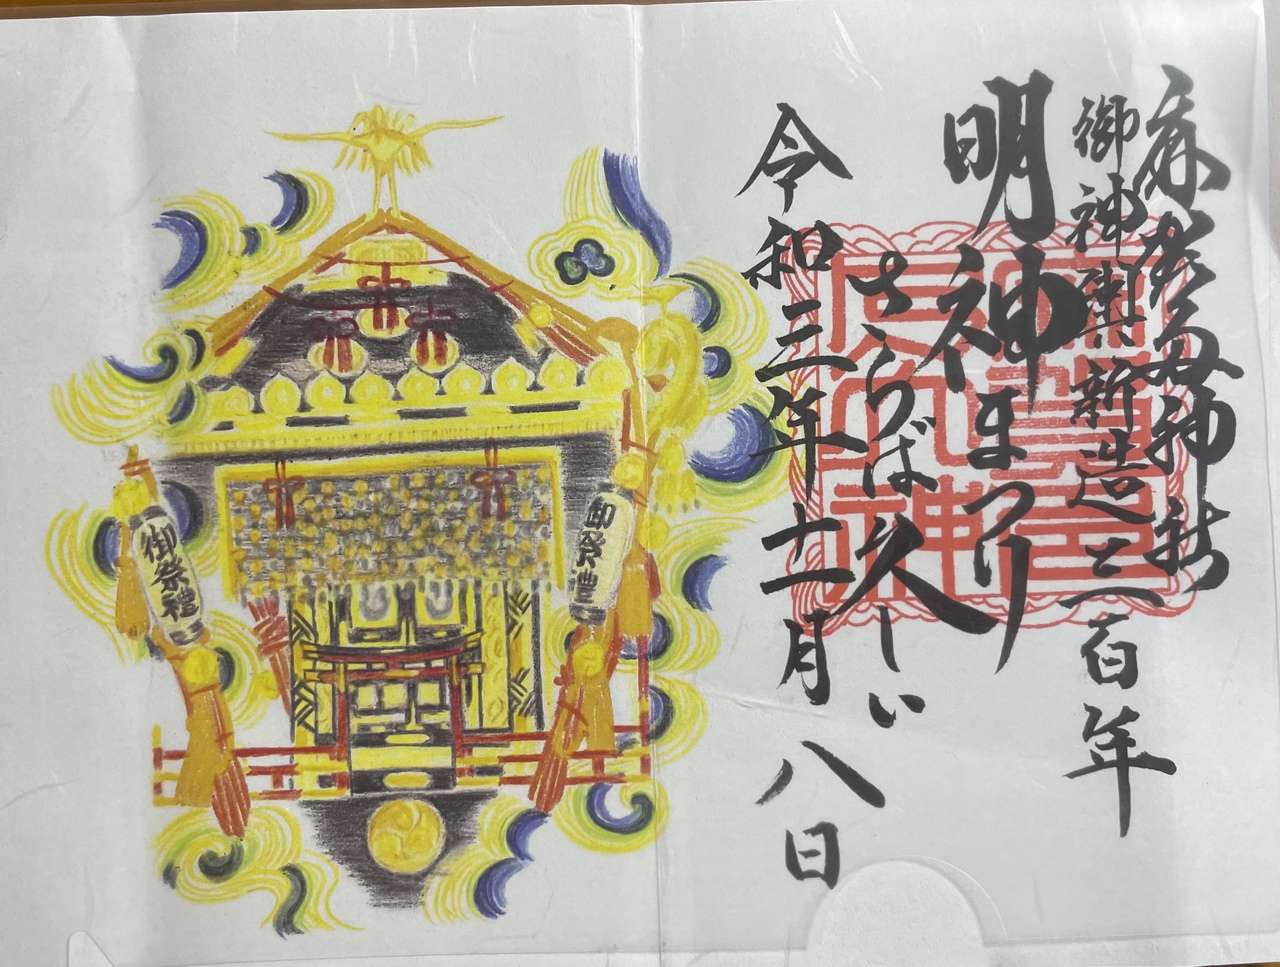 麻賀多神社
御神輿新造三百年
明神まつり
さらば久しい
令和三年十一月八日
御祭禮
御祭禮